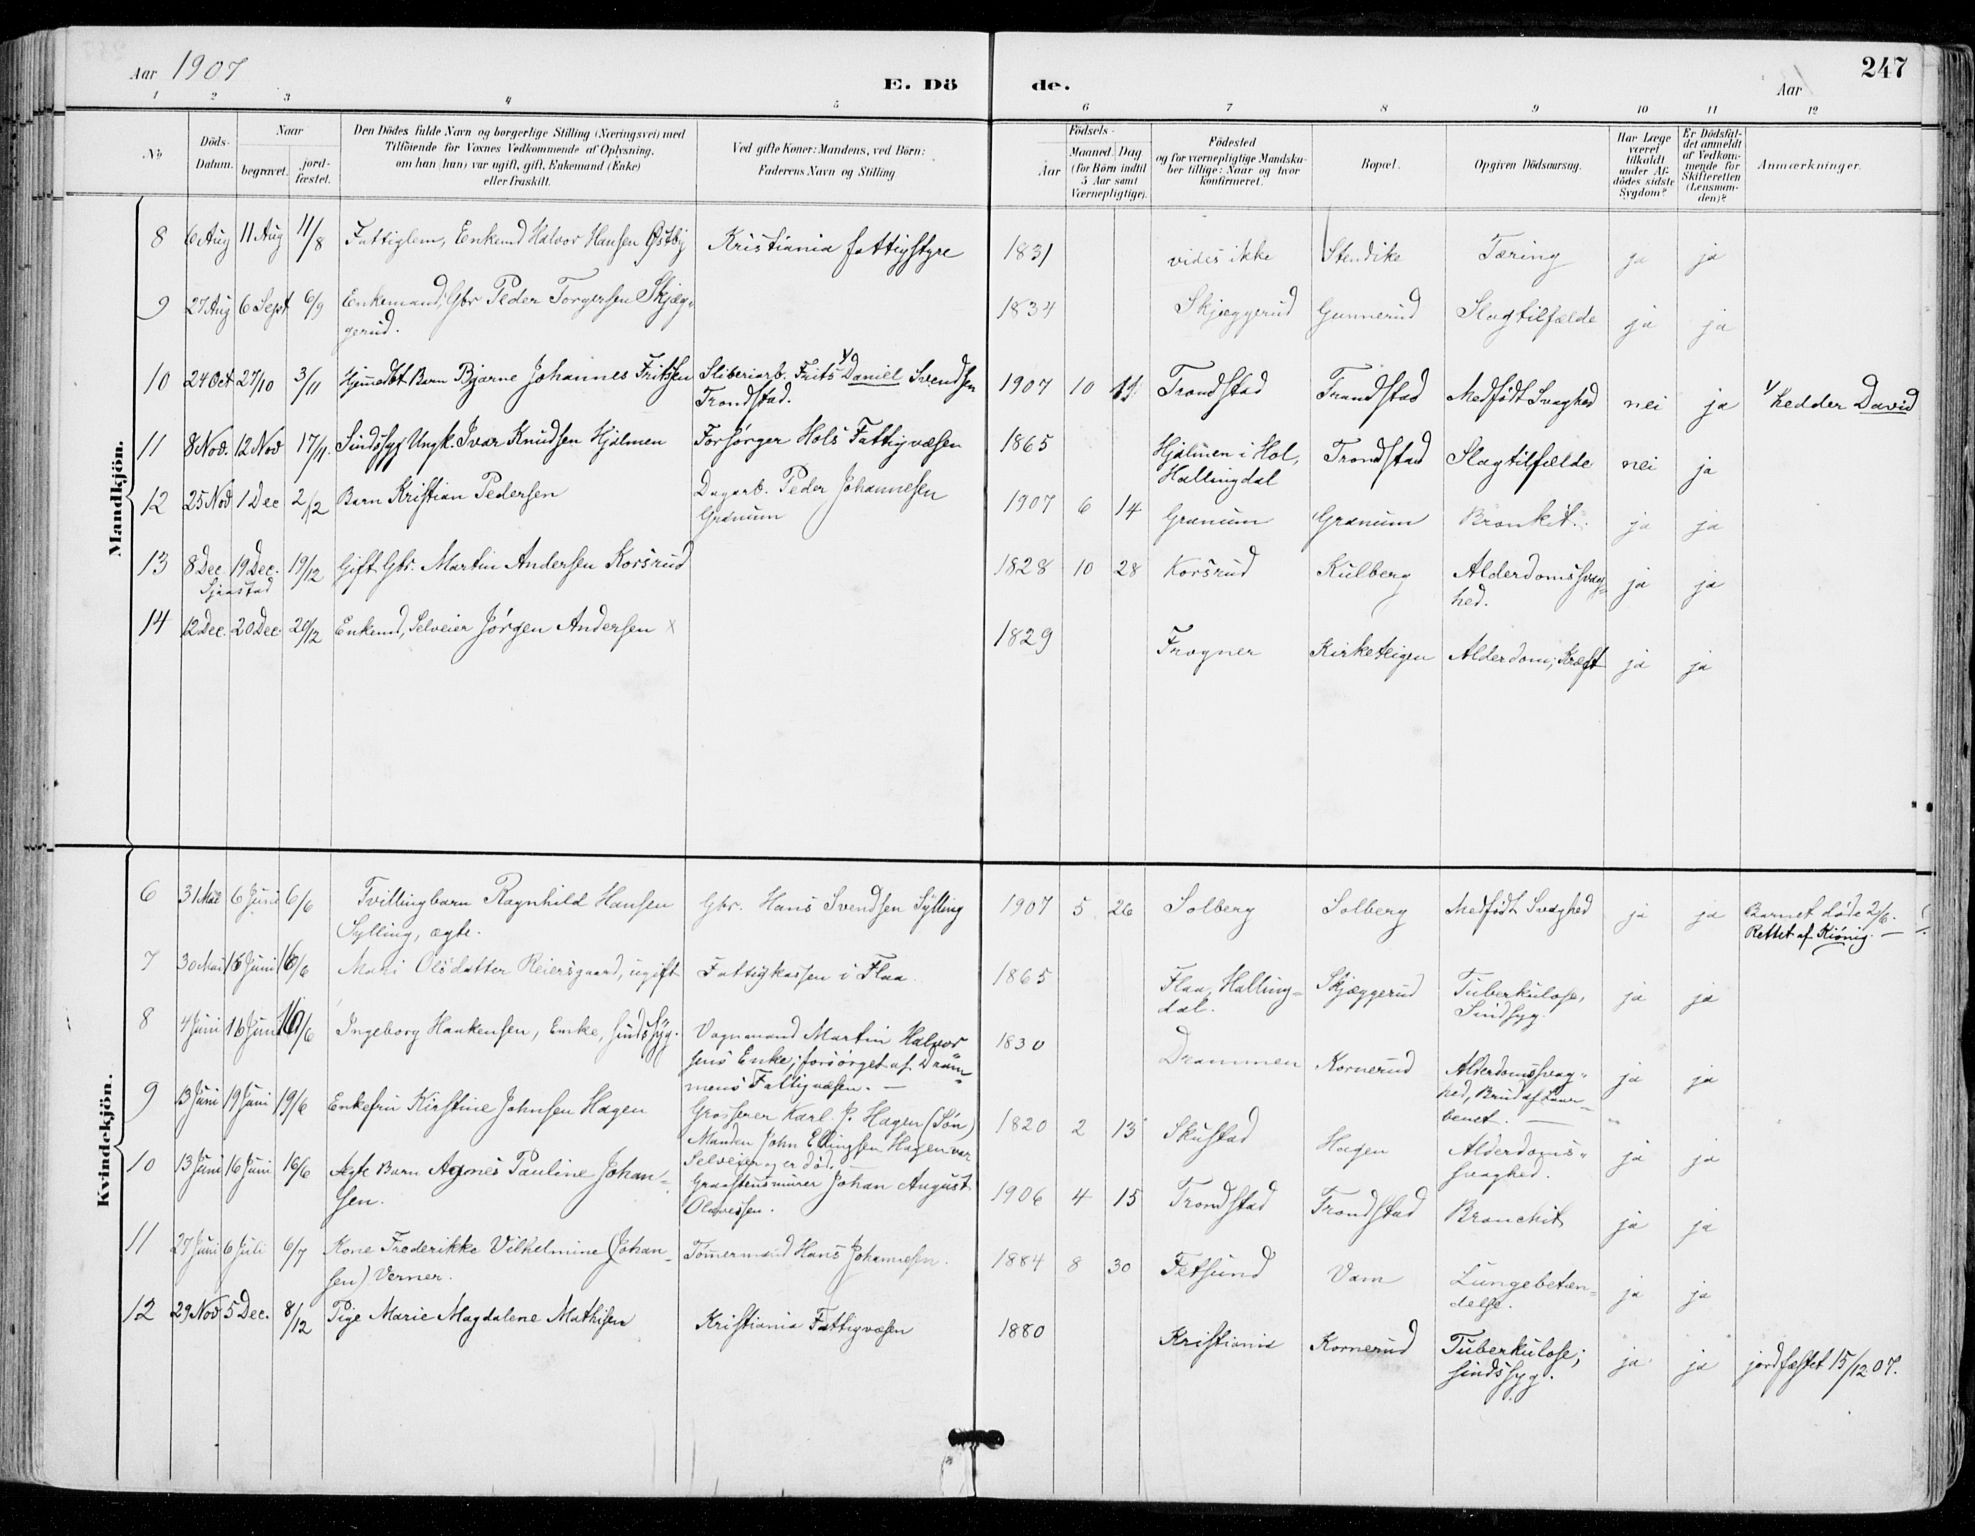 Aar 1907
E. Dö
de.
Aar
247
1 2 3 4 5 6 7 8 9 10 11 12
No
Döds-Datum.
Naar
begravet.
jord-fæstet.
Den Dödes fulde Navn og borgerlige Stilling (Næringsvei) med
Tilföiende for Voxnes Vedkommende af Oplysning,
om han (hun) var ugift, gift, Enkemand (Enke)
eller fraskilt.
Ved gifte Koner: Mandens, ved Börn:
Faderens Navn og Stilling
Födsels-
Aar
Maaned Dag
(for Börn indtil
5 Aar samt
Værnepligtige).
Födested
og for værnepligtige Mandska-
ber tillige: Naar og hvor
konfirmeret.
Bopæl.
Opgiven Dödsaarsag.
Har Læge
været
tilkaldt
under Af-
dödes sidste
Sygdom?
Er Dödsfal-
det anmeldt
af Vedkom-
mende for
Skifteretten
(Lensman-
den)?
Anmærkninger.
Mandkjön.
8 6 Aug 11 Aug 11/8 Fattiglem, Enkemd Halvor Hansen Østby Kristiania fattigstyre 1831 vides ikke Stendike Tæring ja ja
9 27 Aug 6 Sept 6/9 Enkemand, Gbr Peder Torgersen Skjæg- 1834 Skjæggerud Gunnerud Slagtilfælde ja ja
gerud.
10 24 Oct 27/10 3/11 Hjemedbt Barn Bjarne Johannes Fritsen Sliberiarb. Frits 1/ Daniel Svendsen 1907 10 Trondstad Trondstad Medfødt Svaghed nei ja 1/ hedder David
Trondstad.
11 8 Nov. 12 Nov 17/11. Sindssyg Ungk. Ivar Knudsen Hjelmen Forsørger Hols Fattigvæsen 1865 Hjelmen i Hol, Trondstad Slagtilfælde nei ja
Hallingdal
12 25 Nov 1 Dec 2/12 Barn Kristian Pedersen Dagarb. Peder Johannesen 1907 6 14 Granum Granum Bronkit. ja ja
Granum
13 8 Dec 19 Dec. 19/12 Gift Gbr. Martin Andersen Korsrud 1828 10 28 Korsrud Kulberg Alderdomssvag- ja ja
hed.
Sjaastad
14 12 Dec. 20 Dec. 20/12 Enkemd, Selveier Jørgen Andersen x 1829 Frogner Kirketeigen Alderdom; Kræft ja ja
Kvindekjön.
6 31 Mai 6 Juni 6/6 Tvillingbarn Ragnhild Hansen Gbr. Hans Svendsen Sylling 1907 5 26 Solberg Solberg Medfødt Svaghed ja ja Barnet døde 2/6.
Sylling, ægte. Rettet af Kiønig. —
7 30 Mai 16 Juni 16/6 Mari Olsdatter Reiersgaard, ugift Fattigkassen i Flaa 1865 Flaa, Halling- Skjæggerud Tuberkulose, ja ja
dal. Sindsyg.
8 4 Juni 16 Juni 16/6 Ingeborg Haakensen, Enke, sindssyg. Vognmand Martin Halvor 1830 Drammen Kornerud Alderdomssvag- ja ja
sens Enke; forsørget af Dram- hed, Brud af Laar-
mens Fattigvæsen. — benet. —
9 13 Juni 19 Juni 19/6 Enkefru Kirstine Johnsen Hagen Grosserer Karl J. Hagen (Søn) 1820 2 13 Skustad Hagen Alderdoms- ja ja
Manden John Ellingsen Hagen var svaghed.
Selveier og er død. —
10 13 Juni 16 Juni 16/6 Ægte Barn Agnes Pauline Johan- Graastensmurer Johan August 1906 4 15 Trondstad Trondstad Bronchit ja ja
sen. Olavessen.
11 27 Juni 6 Juli 6/7 Kone Frederikke Vilhelmine (Johan- Tømermand Hans Johannesen. 1884 8 30 Fetsund Vam Lungebetæn- ja ja
sen) Verner. delse.
12 29 Nov 5 Dec. 8/12 Pige Marie Magdalene Mathisen Kristiania Fattigvæsen 1880 Kristiania Kornerud Tuberkulose; ja ja jordfæstet 15/12 07.
sindssyg.